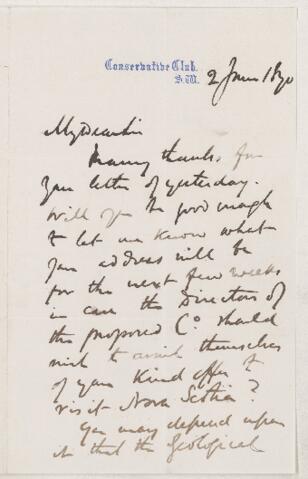 Conservative Club.
S.W.
2 June 1870
My dear Sir
Many thanks for
your letter of yesterday.
Will you be good enough
to let me know what
your address will be
for the next few weeks
in case the Directors of
the proposed Co. should
wish to avail themselves
of your kind offer to
visit Nova Scotia?
You may depend upon
it that the Geological